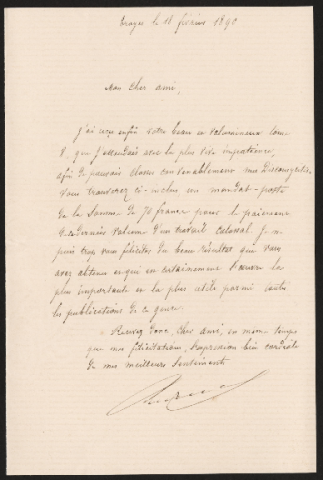 Troyes le 18 février 1890
Mon cher ami,
J'ai reçu enfin votre beau et volumineux tome
V, que j'attendais avec la plus vive impatience,
afin de pouvoir classer convenablement mes
Vous trouverez ci-inclus un mandat-poste
de la somme de 70 francs pour le paiement
de ce dernier volume d'un travail colossal. Je ne
puis trop vous féliciter du beau résultat que vous
avez obtenu et qui est certainement l'œuvre la
plus importante et la plus utile parmi toutes
les publications de ce genre.
Recevez donc, cher ami, en même temps
que mes félicitations, l'expression bien cordiale
de mes meilleurs sentiments